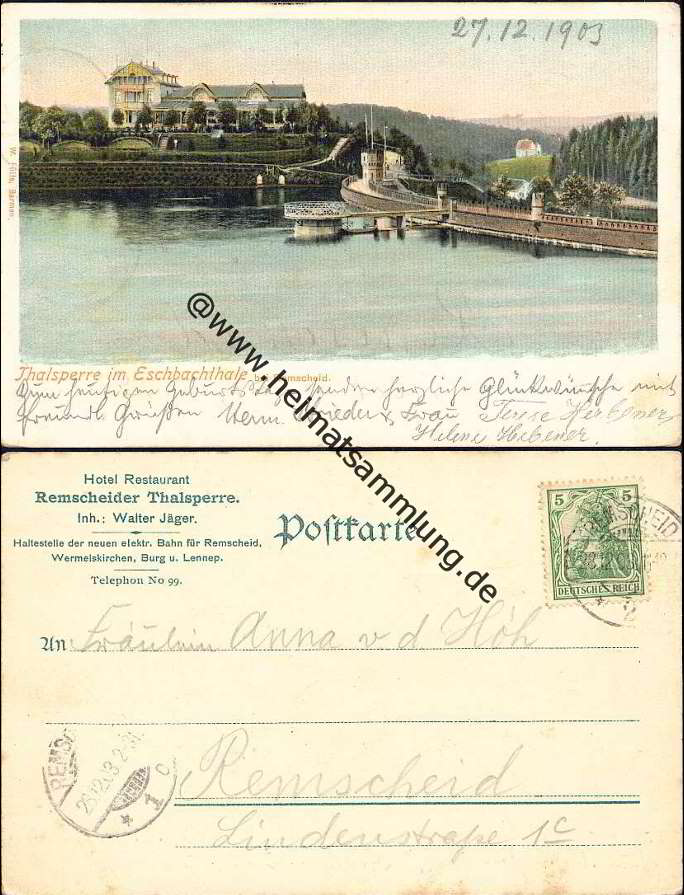 27.12.1903
W. Fülle, Barmen.
Thalsperre im Eschbachthale bei Remscheid.
Zum heutigen Geburtstage senden herzliche Glückwünsche mit
freundl. Grüßen Herm. u. Frau Terese Herbener,
Helene Hebener.
@www.heimatsammlung.de
Hotel Restaurant
Remscheider Thalsperre.
Inh.: Walter Jäger.
Haltestelle der neuen elektr. Bahn für Remscheid,
Wermelskirchen, Burg u. Lennep.
Telephon No 99.
Postkarte
5 5
DEUTSCHES REICH
REMSCHEID
2
An: Fräulein Anna v d Höh
REMSC
1 c
Remscheid
Lindenstraße 1c